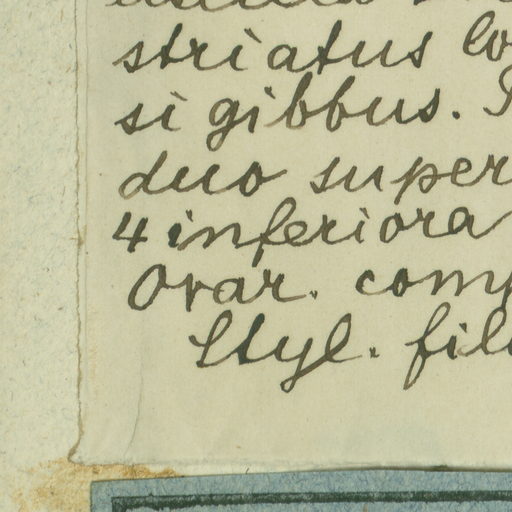 striatus lo
si gibbus. 
duo super
4 inferiora
Ovar. comp
Styl. fil